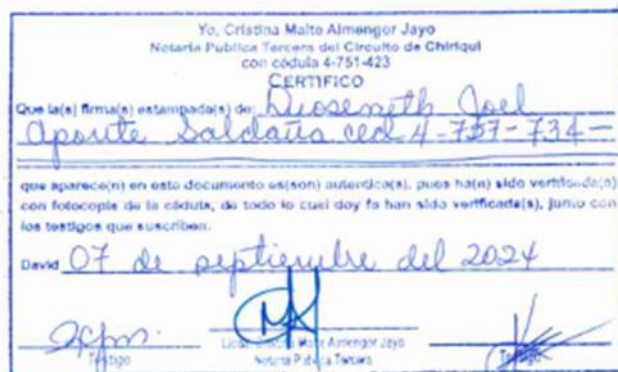 Yo, Cristina Maite Almengor Jayo
Notaria Publica Tercera del Circuito de Chiriqui
con cédula 4-751-423
CERTIFICO
Que la(s) firma(s) estampada(s) de: Joel
Aponte Saldaña ced 4-737-734-
que aparece(n) en este documento es(son) autentica(s), pues ha(n) sido verificada(s)
con fotocopia de la cédula, de todo lo cual doy fe han sido verificada(s), junto con
los testigos que suscriben.
David 07 de septiembre del 2024
Testigo
Maite Almengor Jayo
Notaria Publica Tercera
Testigo